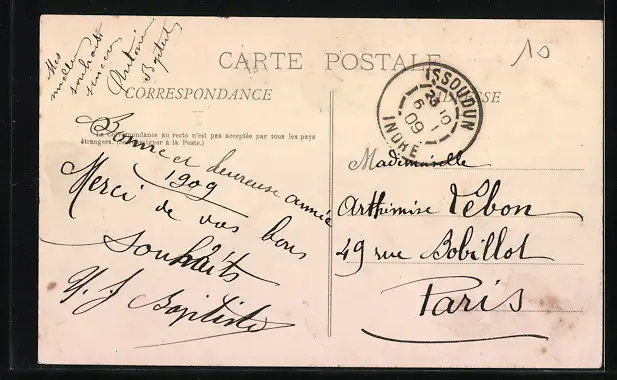 Mes
meilleurs
souhaits
sincères
Antoine
Baptiste
10
CARTE POSTALE
CORRESPONDANCE
ADRESSE
La Correspondance au recto n'est pas acceptée par tous les pays
étrangers. (Se renseigner à la Poste.)
ISSOUDUN
6 - 1
09
INDRE
Bonne et heureuse année
1909
Merci de vos bons
souhaits
Baptiste
Mademoiselle
Arthémise Lebon
49 rue Bobillot
Paris